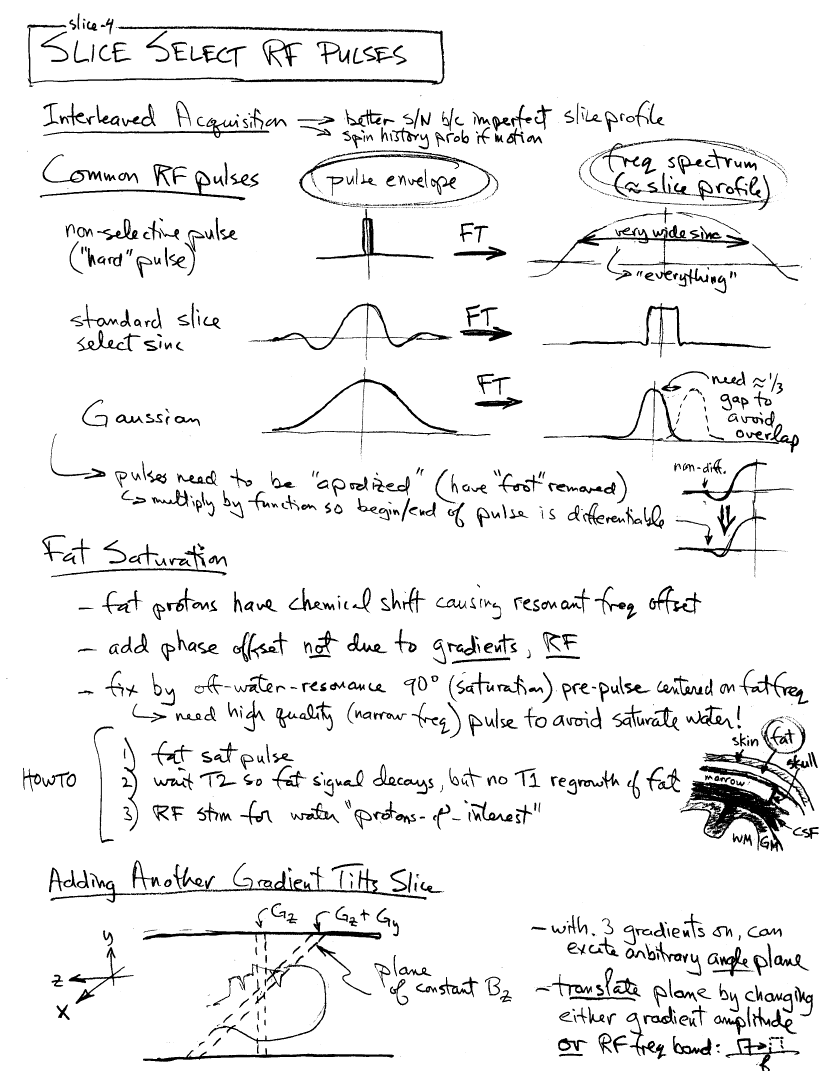 slice-4
SLICE SELECT RF PULSES
Interleaved Acquisition → better S/N b/c imperfect slice profile
→ spin history prob if motion
Common RF pulses
pulse envelope
freq spectrum
(≈ slice profile)
non-selective pulse
("hard" pulse)
FT
very wide sinc
"everything"
standard slice
select sinc
FT
Gaussian
FT
need ≈ 1/3
gap to
avoid
overlap
→ pulses need to be "apodized" (have "foot" removed)
↳ multiply by function so begin/end of pulse is differentiable
non-diff.
Fat Saturation
– fat protons have chemical shift causing resonant freq offset
– add phase offset not due to gradients, RF
– fix by off-water-resonance 90° (saturation) pre-pulse centered on fat freq
↳ need high quality (narrow freq) pulse to avoid saturate water!
HOWTO
1) fat sat pulse
2) wait T2 so fat signal decays, but no T1 regrowth of fat
3) RF stim for water "protons-of-interest"
skin
fat
skull
marrow
CSF
WM
GM
Adding Another Gradient Tilts Slice
Gz
Gz + Gy
y
z
x
plane
of constant Bz
– with 3 gradients on, can
excite arbitrary angle plane
– translate plane by changing
either gradient amplitude
or RF freq band:
f